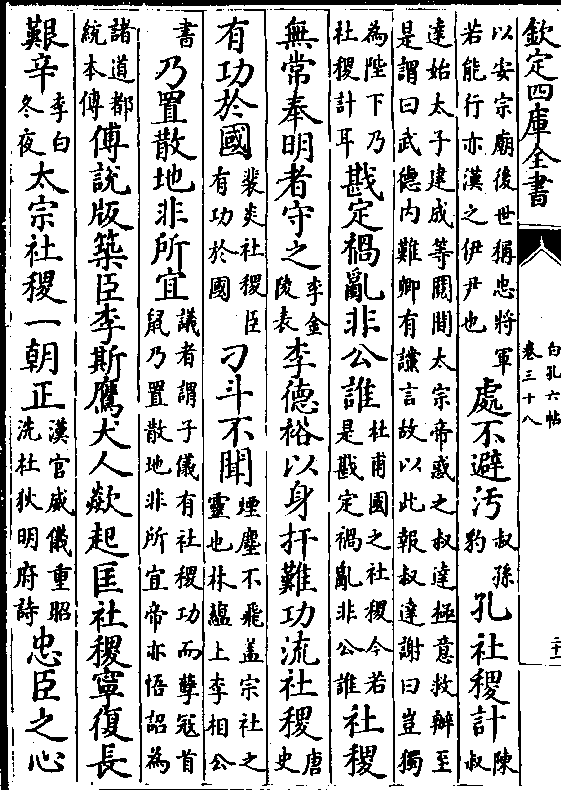 欽定四庫全書
白孔六帖
卷三十八
二十一
以安宗廟後世稱忠將軍
若能行亦漢之伊尹也
處不避汚
叔孫
豹
孔社稷計
陳
叔
達始太子建成等鬩間太宗帝惑之叔達極意救辦至
是謂曰武德内難卿有讜言故以此報叔達謝曰豈獨
為陛下乃
社稷計耳
戡定禍亂非公誰
杜甫國之社稷今若
是戡定禍亂非公誰
社稷
無常奉明者守之
李金
陵表
李德裕以身扞難功流社稷
唐
史
有功於國
裴炎社稷臣
有功於國
刁斗不聞
堙塵不飛盖宗社之
靈也林藴上李相公
書
乃置散地非所宜
議者謂子儀有社稷功而孽冦首
鼠乃置散地非所宜帝亦悟詔為
諸道都
統本傳
傅說版築臣李斯鷹犬人歘起匡社稷寧復長
艱辛
李白
冬夜
太宗社稷一朝正
漢官威儀重昭
洗杜狄明府詩
忠臣之心